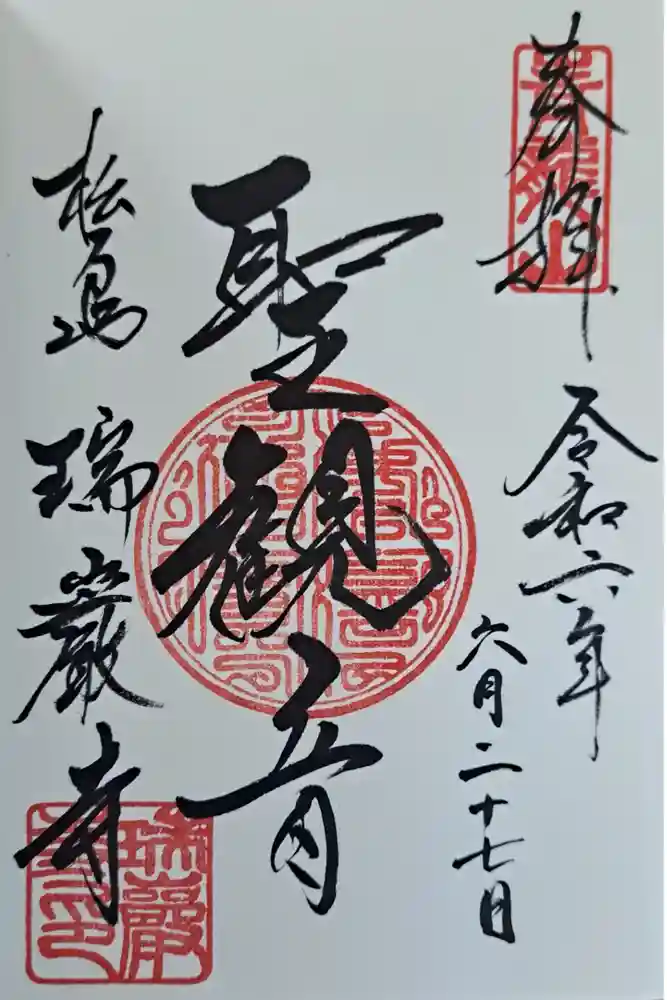 奉拝
令和六年
六月二十七日
聖観音
松島 瑞巌寺
瑞巌寺印